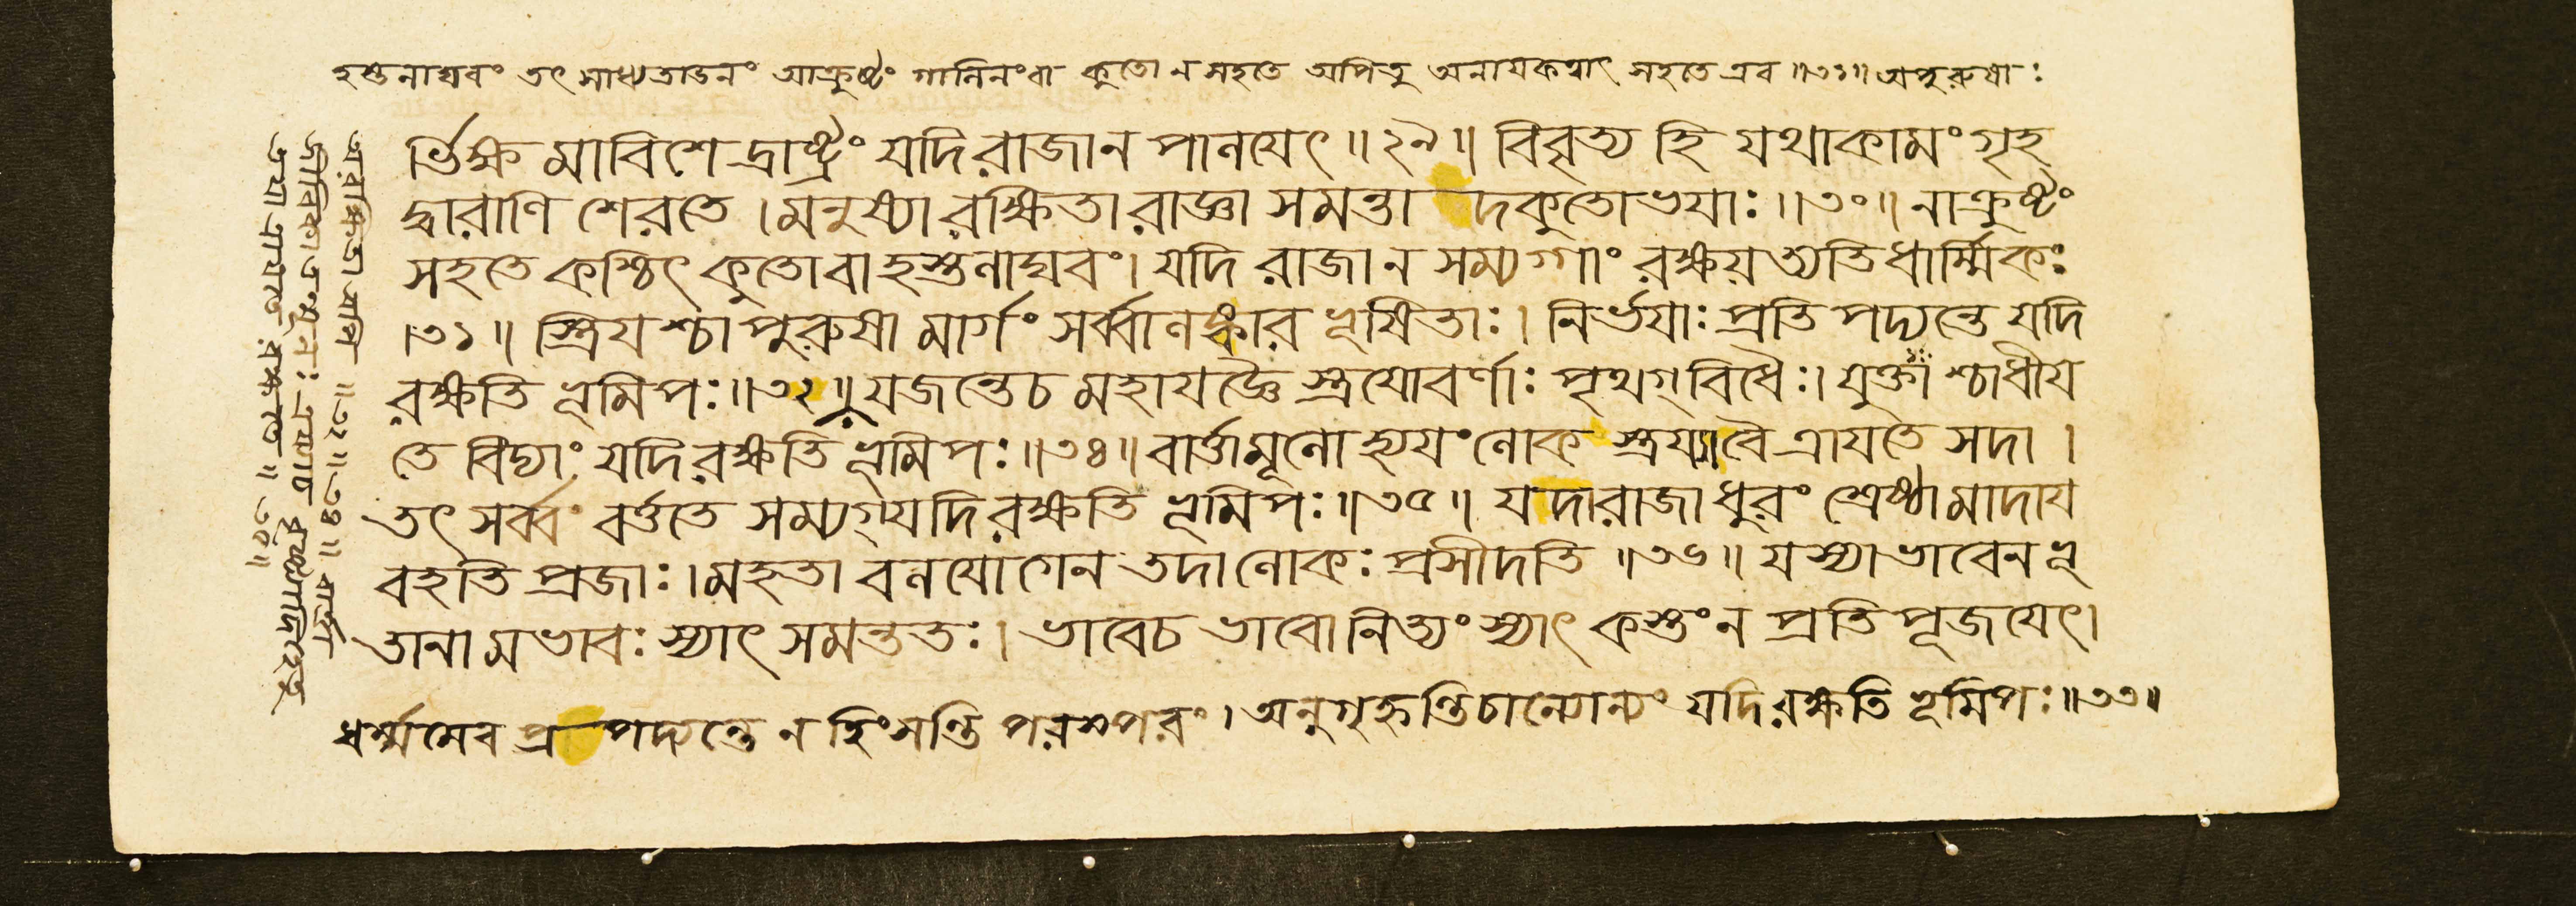 হস্তলাঘবং তৎ সাধ্যতাডনং আক্রুষ্টং গালিনংবা কুতো ন সহতে অপিতু অনাযকত্বাৎ সহতে এব ॥৩১॥ অপুরুষাঃ
র্ভিক্ষ মাবিশে দ্রাষ্ট্রং যদি রাজা ন পালযেৎ ॥ ২৯ ॥ বিবৃত্য হি যথাকামং গৃহ
দ্বারাণি শেরতে । মনুষ্যা রক্ষিতা রাজ্ঞা সমন্তা দকুতোভযাঃ ॥৩০॥ নাক্রুষ্টং
সহতে কশ্চিৎ কুতোবা হস্তলাঘবং । যদি রাজা ন সম্যগ্গাং রক্ষয় ত্যতিধার্ম্মিকঃ
।৩১ ॥ স্ত্রিযশ্চা পুরুষা মার্গং সর্ব্বালঙ্কার ভূষিতাঃ । নির্ভযাঃ প্রতি পদ্যন্তে যদি
রক্ষতি ভূমিপঃ ॥৩২॥ যজন্তেচ মহাযজ্ঞৈ স্ত্রযোবর্ণাঃ পৃথগ্ বিধৈঃ । যুক্তা শ্চাধীয
তে বিদ্যাং যদি রক্ষতি ভূমিপঃ ॥৩৪॥ বার্ত্তামূলো হ্যযংলোক স্ত্রয্যাবৈ ত্রাযতে সদা ।
তৎ সর্ব্বং বর্ত্ততে সম্যগ্ যদি রক্ষতি ভূমিপঃ ॥৩৫॥ যদা রাজা ধুরং শ্রেষ্ঠা মাদায
বহতি প্রজাঃ । মহতা বলযোগেন তদা লোকঃ প্রসীদতি ॥৩৬॥ যস্যা ভাবেন ভূ
তানা মভাবঃ স্যাৎ সমন্ততঃ । ভাবেচ ভাবো নিত্যং স্যাৎ কস্তং ন প্রতি পূজযেৎ ।
ধর্ম্মমেব প্রপদ্যন্তে ন হিংসন্তি পরস্পরং । অনুগৃহ্লন্তিচান্যোন্যং যদি রক্ষতি ভূমিপঃ ॥৩৩॥
অরক্ষিতা অপি ॥৩২॥৩৪॥ বার্ত্তা
জীবিকা তন্মূলঃ
তযা ত্রাযতে রক্ষ্যতে ॥ ৩৫॥